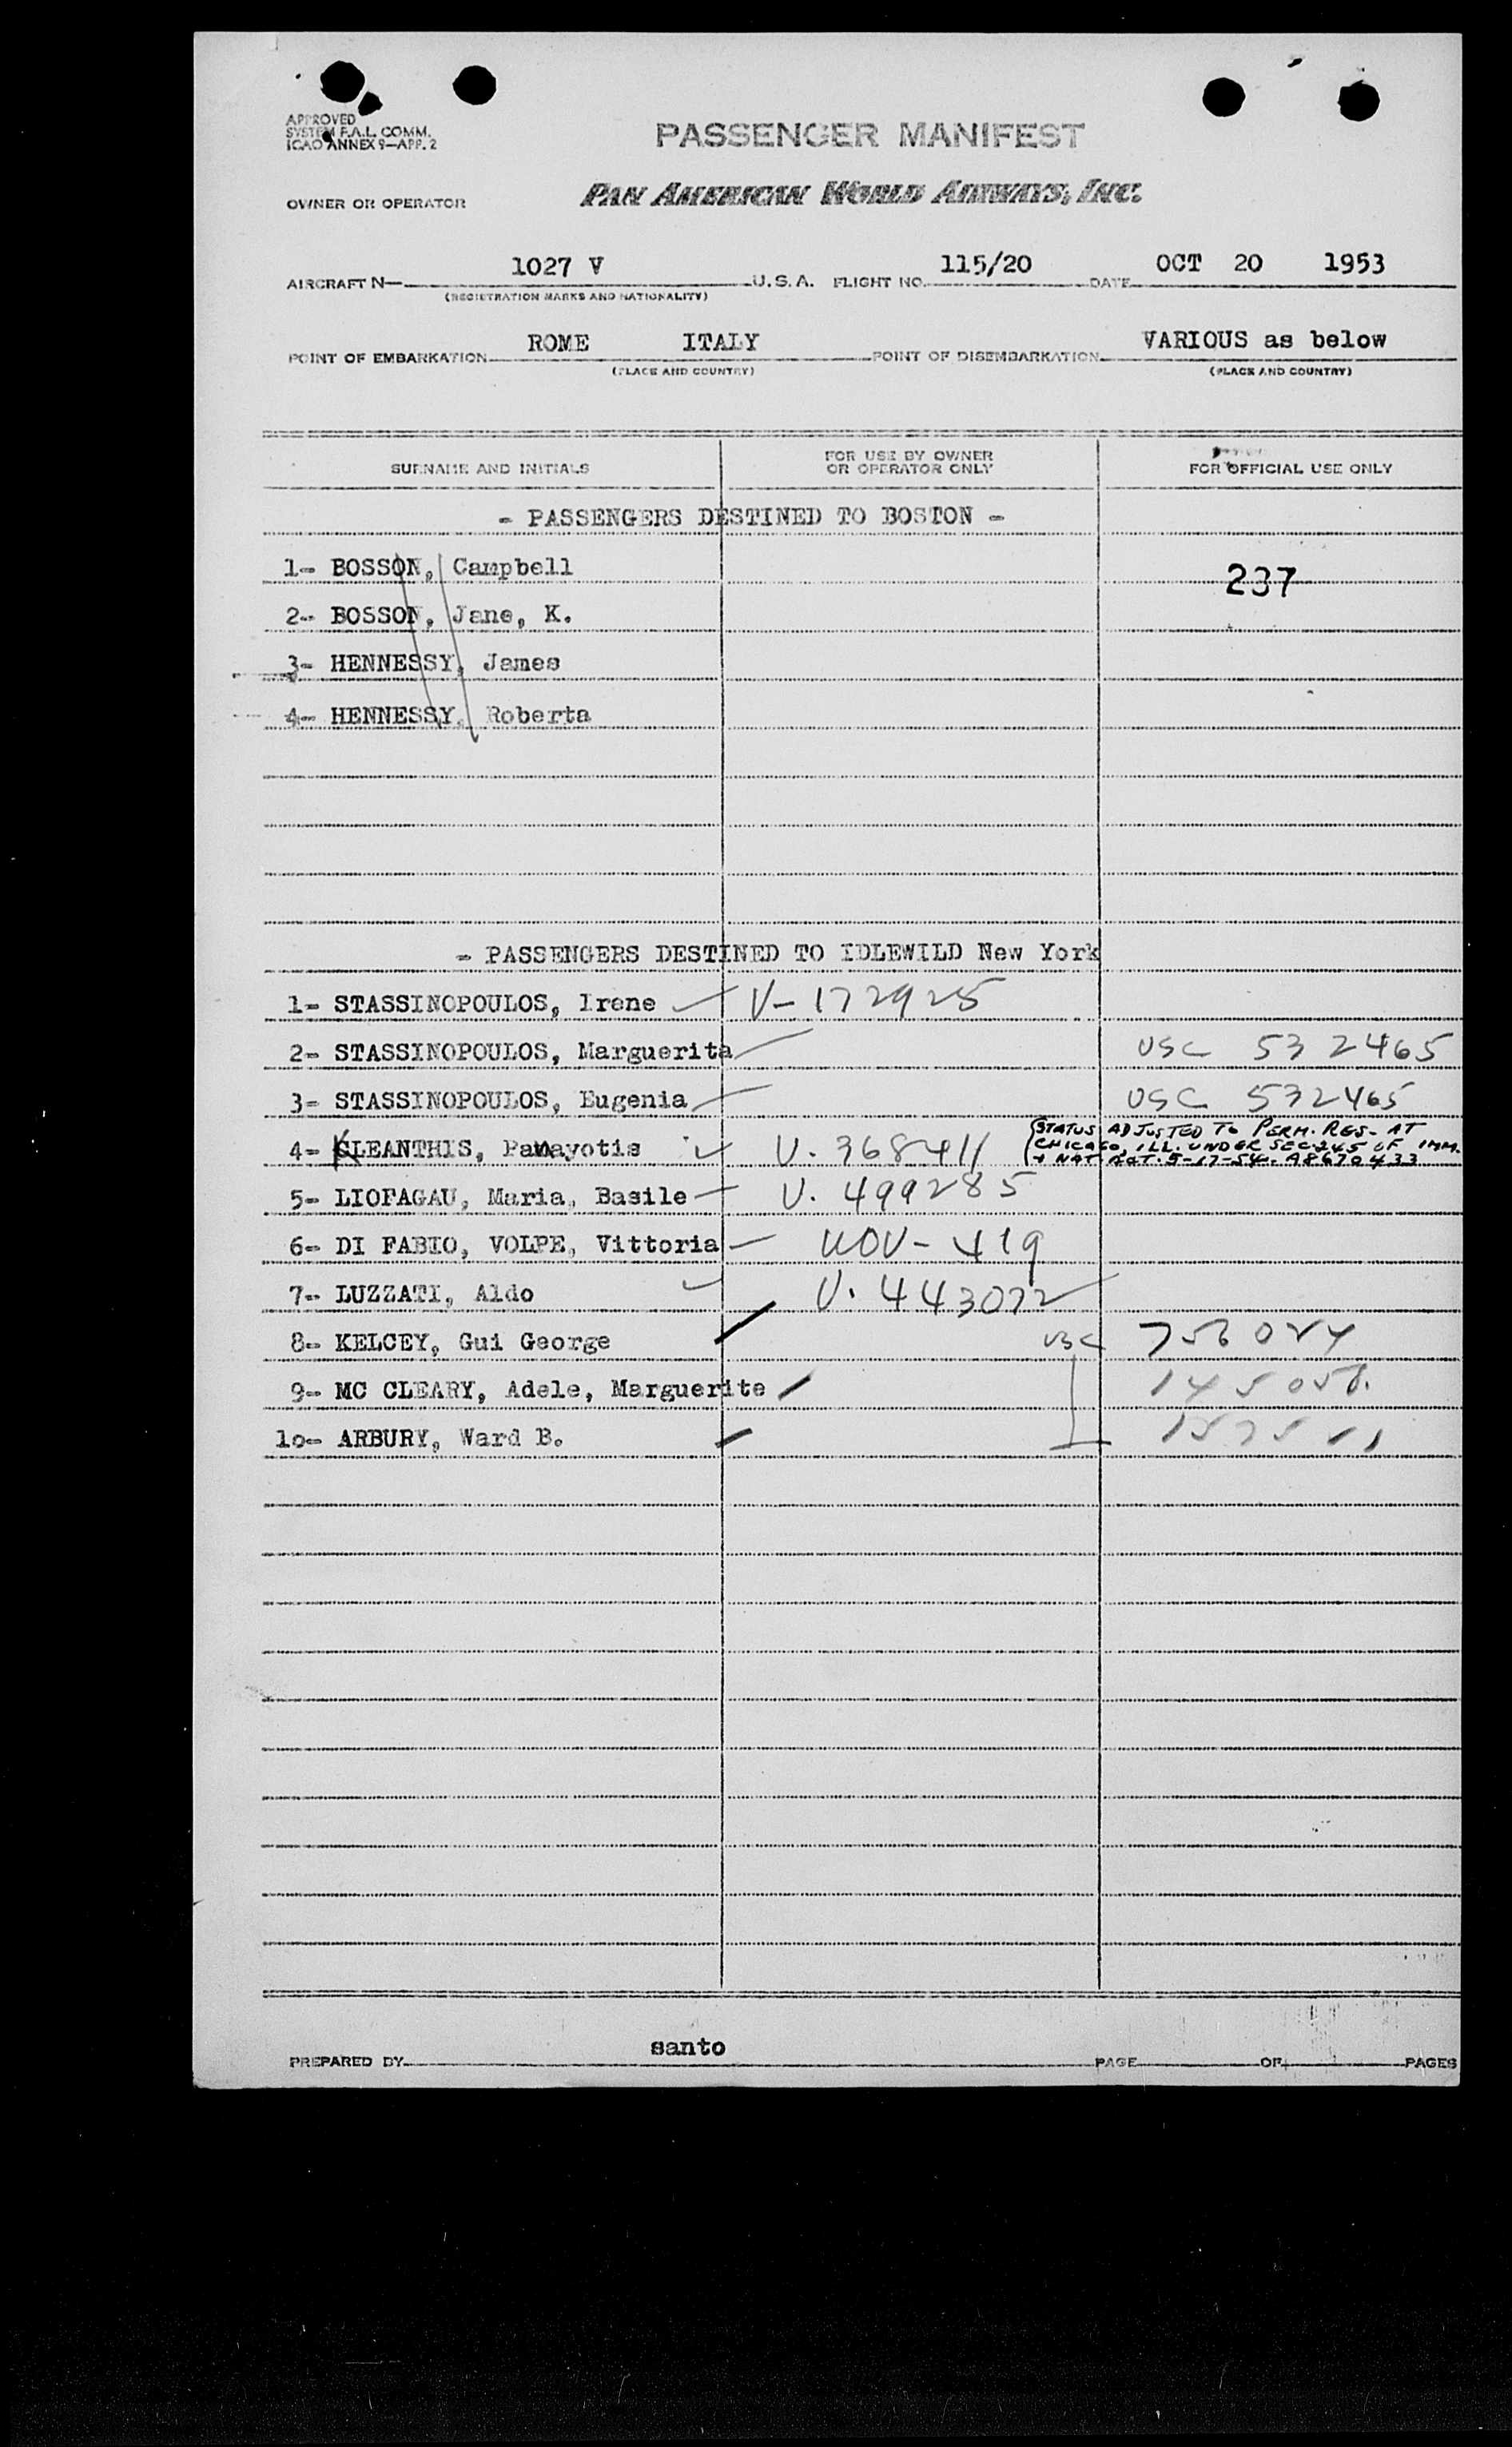 APPROVED
SYSTEM F.A.L. COMM.
ICAO ANNEX 9—APP. 2
PASSENGER MANIFEST
OWNER OR OPERATOR PAN AMERICAN WORLD AIRWAYS, INC.
AIRCRAFT N— 1027 V U.S.A. FLIGHT NO. 115/20 DATE OCT 20 1953
(REGISTRATION MARKS AND NATIONALITY)
POINT OF EMBARKATION ROME ITALY POINT OF DISEMBARKATION VARIOUS as below
(PLACE AND COUNTRY) (PLACE AND COUNTRY)
SURNAME AND INITIALS FOR USE BY OWNER OR OPERATOR ONLY FOR OFFICIAL USE ONLY
- PASSENGERS DESTINED TO BOSTON -
1- BOSSON, Campbell 237
2- BOSSON, Jane, K.
3- HENNESSY, James
4- HENNESSY, Roberta
- PASSENGERS DESTINED TO IDLEWILD New York
1- STASSINOPOULOS, Irene V-172925
2- STASSINOPOULOS, Marguerita USC 532465
3- STASSINOPOULOS, Eugenia USC 532465
4- KLEANTHIS, Panayotis V. 368411 (STATUS ADJUSTED TO PERM. RES. AT
CHICAGO, ILL. UNDER SEC. 245 OF IMM.
+ NAT. ACT. 5-17-54. A8670433
5- LIOFAGAU, Maria, Basile V. 499285
6- DI FABIO, VOLPE, Vittoria 419
7- LUZZATI, Aldo V. 443072
8- KELCEY, Gui George USC
9- MC CLEARY, Adele, Marguerite 145058.
10- ARBURY, Ward B.
PREPARED BY santo PAGE OF PAGES